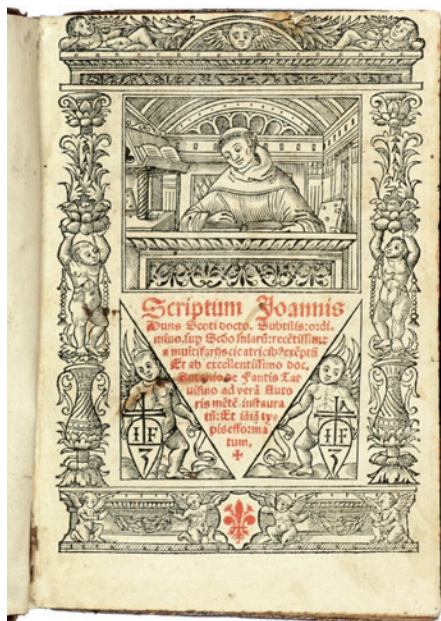 Scriptum Joannis
Duns Scoti docto. Subtilis: ordi.
mino. sup Scdo sniarū: recētissime
a multifariis cicatricibꝰ exēptū
Et ab excellentissimo doc.
Antonio de Fantis Tar
uisino ad verā Auto
ris mētē instaura
tū: Et iāiā ty-
pis efforma
tum.
I F
I F